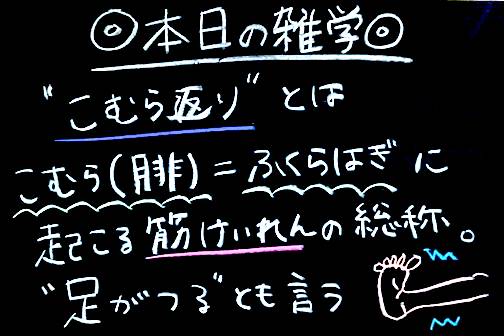 ◎本日の雑学◎
"こむら返り"とは
こむら(腓)=ふくらはぎに
起こる筋けいれんの総称。
"足がつる"とも言う